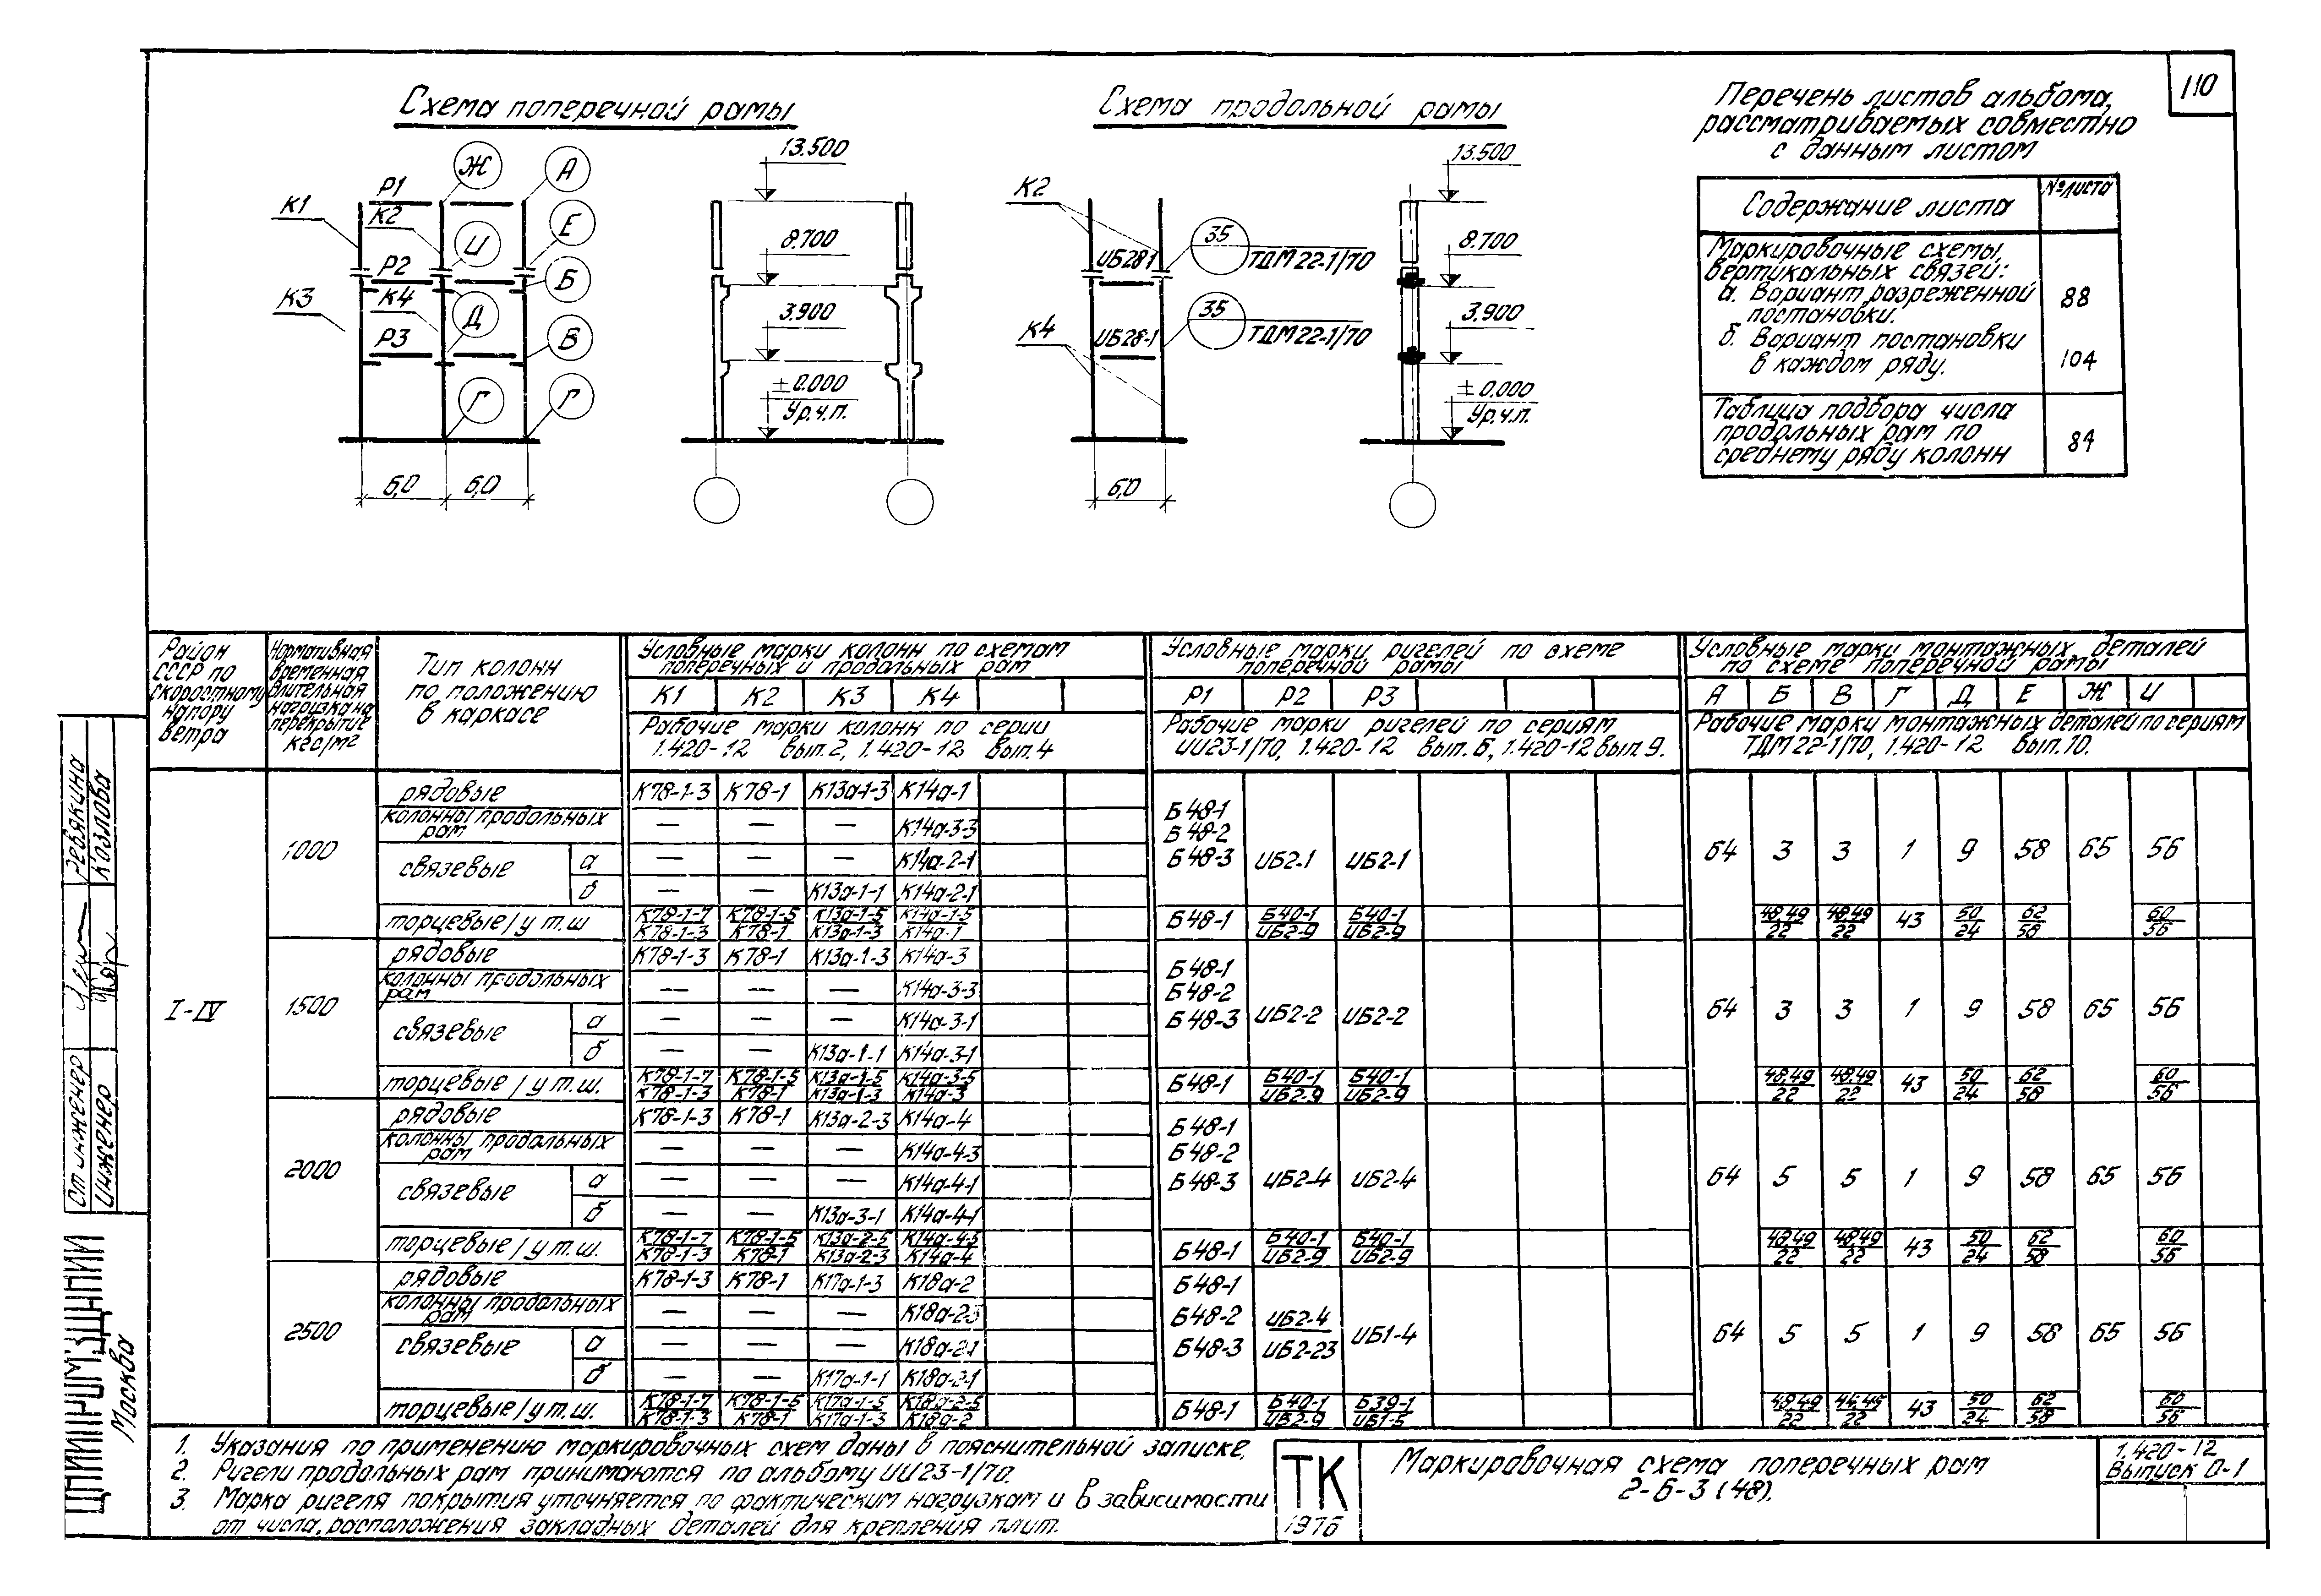 110
Схема поперечной рамы
Схема продольной рамы
Перечень листов альбома,
рассматриваемых совместно
с данным листом
Содержание листа
№ листа
Маркировочные схемы,
вертикальных связей:
а. Вариант разреженной
постановки.
88
б. Вариант постановки
в каждом ряду.
104
Таблица подбора числа
продольных рам по
среднему ряду колонн
84
К1 Р1 К2 Ж А
И Е
Р2 К4 Б
К3 Д
Р3 В
Г Г
6,0 6,0
13.500
8.700
3.900
± 0.000
Ур.ч.п.
К2
35
ТДМ 22-1/70
ИБ28-1
35
ТДМ 22-1/70
К4
ИБ28-1
6,0
13.500
8.700
3.900
± 0.000
Ур.ч.п.
Район СССР по скоростному напору ветра
Нормативная временная длительная нагрузка на перекрытие кгс/м²
Тип колонн по положению в каркасе
Условные марки колонн по схемам поперечных и продольных рам
К1 К2 К3 К4
Рабочие марки колонн по серии
1.420-12 вып. 2, 1.420-12 вып. 4
Условные марки ригелей по схеме поперечной рамы
Р1 Р2 Р3
Рабочие марки ригелей по сериям
ИИ23-1/70, 1.420-12 вып. 6, 1.420-12 вып. 9.
Условные марки монтажных деталей по схеме поперечной рамы
А Б В Г Д Е Ж И
Рабочие марки монтажных деталей по сериям
ТДМ 22-1/70, 1.420-12 вып. 10.
I-IV
1000
рядовые К78-1-3 К78-1 К13а-1-3 К14а-1
колонны продольных рам — — — К14а-3-3
связевые а — — — К14а-2-1
б — — К13а-1-1 К14а-2-1
Б48-1
Б48-2
Б48-3 ИБ2-1 ИБ2-1
64 3 3 1 9 58 65 56
торцевые/у т.ш К78-1-7/К78-1-3 К78-1-5/К78-1 К13а-1-5/К13а-1-3 К14а-1-5/К14а-1 Б48-1 Б40-1/ИБ2-9 Б40-1/ИБ2-9 48,49/22 48,49/22 43 50/24 62/58 60/56
1500
рядовые К78-1-3 К78-1 К13а-1-3 К14а-3
колонны продольных рам — — — К14а-3-3
связевые а — — — К14а-3-1
б — — К13а-1-1 К14а-3-1
Б48-1
Б48-2
Б48-3 ИБ2-2 ИБ2-2
64 3 3 1 9 58 65 56
торцевые/у т.ш. К78-1-7/К78-1-3 К78-1-5/К78-1 К13а-1-5/К13а-1-3 К14а-3-5/К14а-3 Б48-1 Б40-1/ИБ2-9 Б40-1/ИБ2-9 48,49/22 48,49/22 43 50/24 62/58 60/56
2000
рядовые К78-1-3 К78-1 К13а-2-3 К14а-4
колонны продольных рам — — — К14а-4-3
связевые а — — — К14а-4-1
б — — К13а-3-1 К14а-4-1
Б48-1
Б48-2
Б48-3 ИБ2-4 ИБ2-4
64 5 5 1 9 58 65 56
торцевые/у т.ш. К78-1-7/К78-1-3 К78-1-5/К78-1 К13а-2-5/К13а-2-3 К14а-4-5/К14а-4 Б48-1 Б40-1/ИБ2-9 Б40-1/ИБ2-9 48,49/22 48,49/22 43 50/24 62/58 60/56
2500
рядовые К78-1-3 К78-1 К17а-1-3 К18а-2
колонны продольных рам — — — К18а-2-3
связевые а — — — К18а-2-1
б — — К17а-1-1 К18а-2-1
Б48-1
Б48-2
Б48-3 ИБ2-4/ИБ2-23 ИБ1-4
64 5 5 1 9 58 65 56
торцевые/у т.ш. К78-1-7/К78-1-3 К78-1-5/К78-1 К17а-1-5/К17а-1-3 К18а-2-5/К18а-2 Б48-1 Б40-1/ИБ2-9 Б39-1/ИБ1-5 48,49/22 44,45/22 43 50/24 62/58 60/56
1. Указания по применению маркировочных схем даны в пояснительной записке.
2. Ригели продольных рам принимаются по альбому ИИ23-1/70.
3. Марка ригеля покрытия уточняется по фактическим нагрузкам и в зависимости
от числа, расположения закладных деталей для крепления плит.
ТК
1976
Маркировочная схема поперечных рам
2-6-3 (48).
1.420-12
Выпуск 0-1
Ст. инженер Ревякина
Инженер Козлова
ЦНИИПРОМЗДАНИЙ
Москва